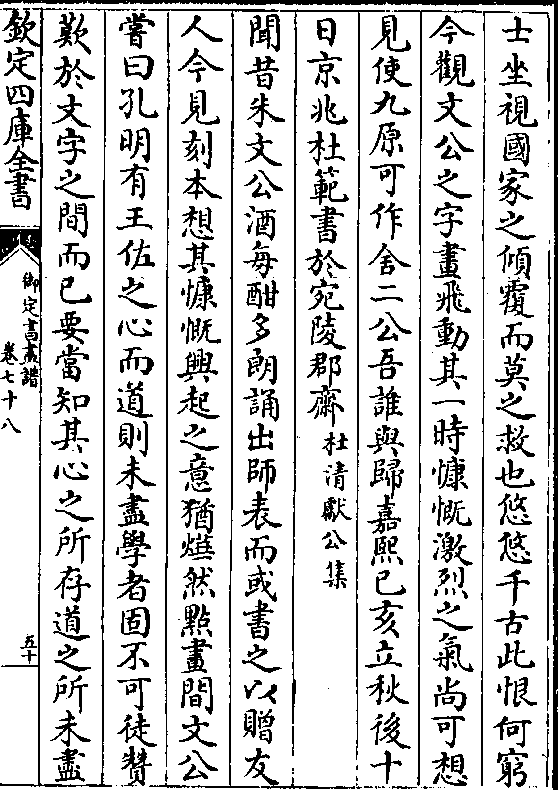 士坐視國家之傾覆而莫之救也悠悠千古此恨何窮
今觀文公之字畫飛動其一時慷慨激烈之氣尚可想
見使九原可作舍二公吾誰與歸嘉熙己亥立秋後十
日京兆杜範書於宛陵郡齋杜清獻公集
聞昔朱文公酒毎酣多朗誦出師表而或書之以贈友
人今見刻本想其慷慨興起之意猶爀然點畫間文公
嘗曰孔明有王佐之心而道則未盡學者固不可徒贊
歎於文字之間而已要當知其心之所存道之所未盡
欽定四庫全書
御定書畫譜
卷七十八
五十